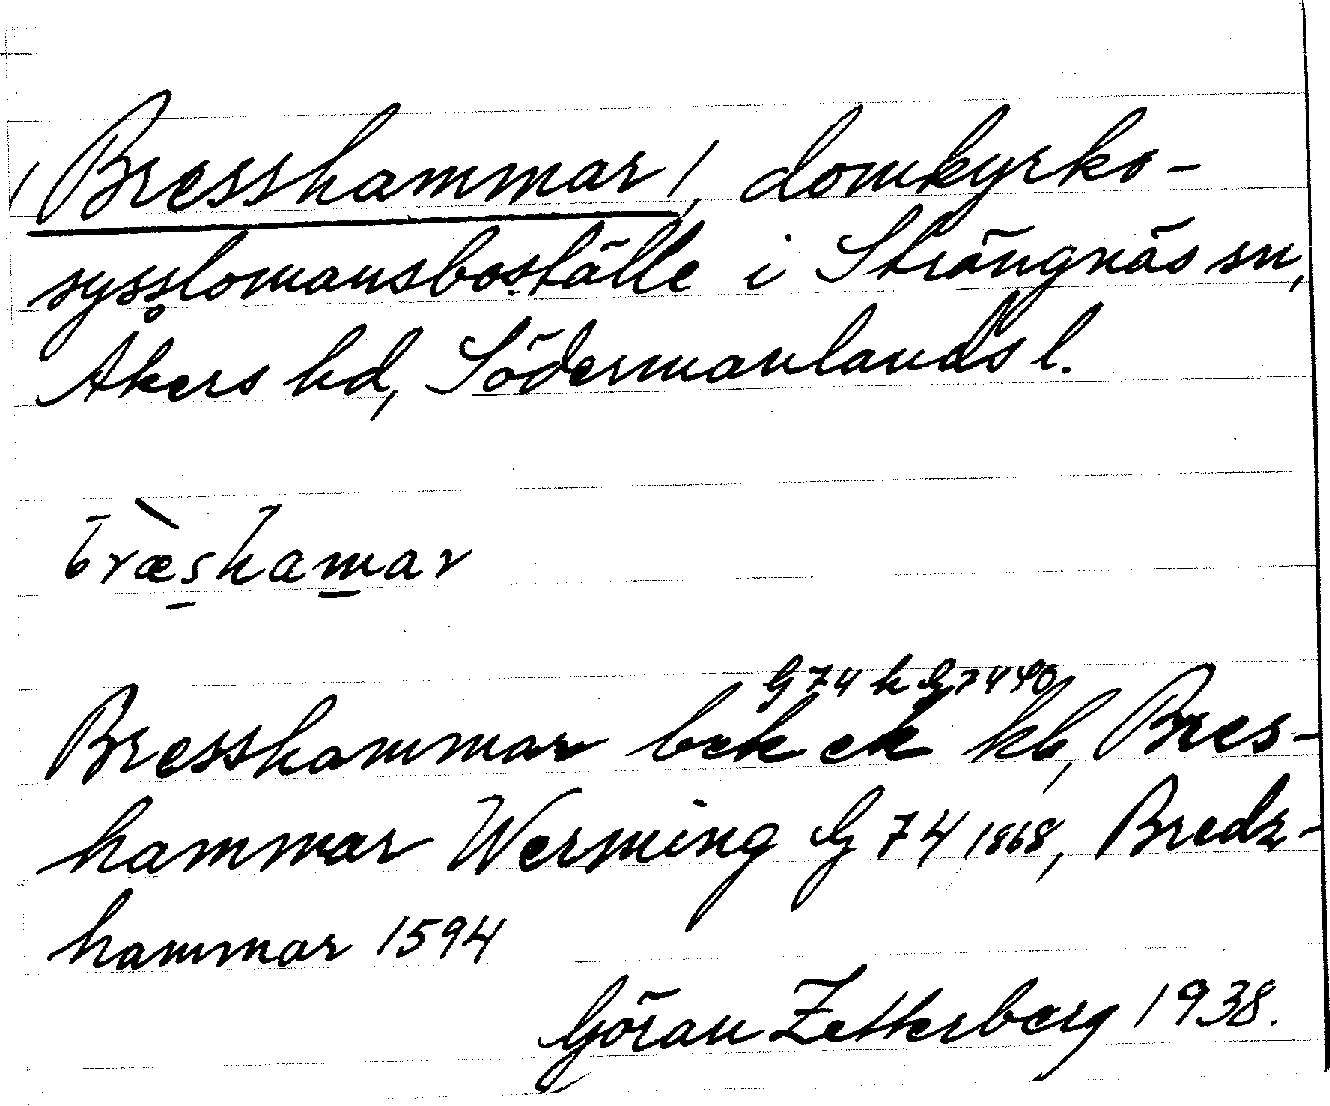 /Bresshammar/, domkyrko-
sysslomansboställe i Strängnäs sn,
Åkers hd, Södermanlands l.
bræ̀shamar
G 74 k G 74 40
Bresshammar bek ek kb, Bres-
hammar Werming G 74 1868, Bredz-
hammar 1594
Göran Zetterberg 1938.